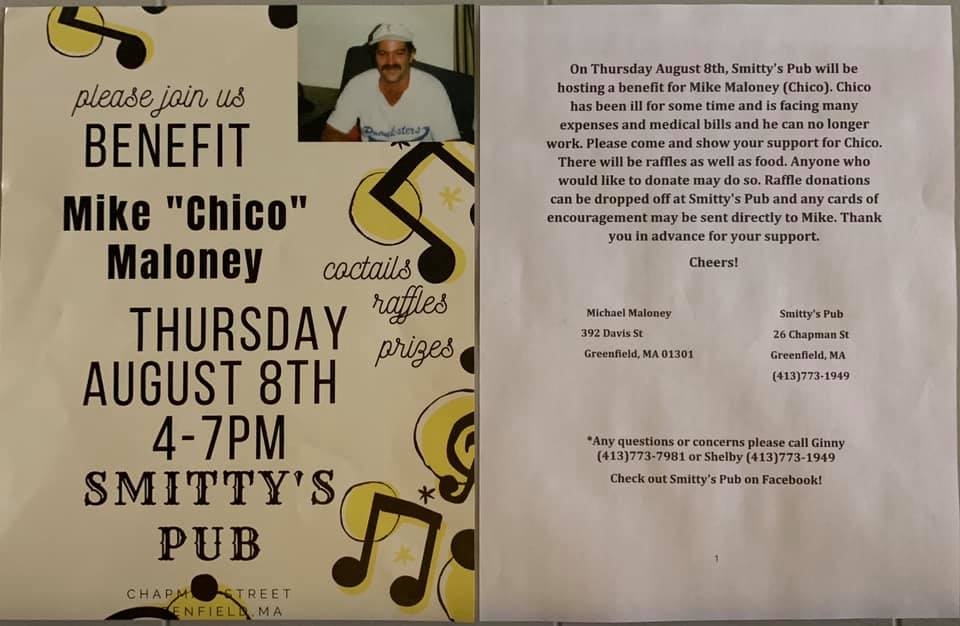 please join us
BENEFIT
Mike "Chico"
Maloney
coctails
raffles
prizes
THURSDAY
AUGUST 8TH
4-7PM
SMITTY'S
PUB
STREET
,MA
On Thursday August 8th, Smitty's Pub will be
hosting a benefit for Mike Maloney (Chico). Chico
has been ill for some time and is facing many
expenses and medical bills and he can no longer
work. Please come and show your support for Chico.
There will be raffles as well as food. Anyone who
would like to donate may do so. Raffle donations
can be dropped off at Smitty's Pub and any cards of
encouragement may be sent directly to Mike. Thank
you in advance for your support.
Cheers!
Michael Maloney
392 Davis St
Greenfield, MA 01301
Smitty's Pub
26 Chapman St
Greenfield, MA
(413)773-1949
*Any questions or concerns please call Ginny
(413)773-7981 or Shelby (413)773-1949
Check out Smitty's Pub on Facebook!
1